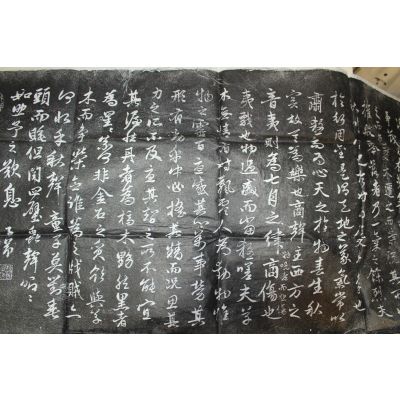 於行用金是謂天地之義氣常以
肅殺而為心天之於物春生秋
實故其為樂也商聲主西方之
音夷則為七月之律商傷也
物既老而悲傷
夷戮也物過盛而當殺嗟夫草
木無情有時飄零人為動物惟
物之靈百憂感其心萬事勞其
形有動乎中必搖其精而況思其
力之所不及憂其智之所不能宜
其渥然丹者為槁木黟然黑者
為星星奈何非金石之質欲與草
木而爭榮念誰為之戕賊亦
何恨乎秋聲童子莫對垂
頭而睡但聞四壁蟲聲唧〻
如助予之歎息 子昂